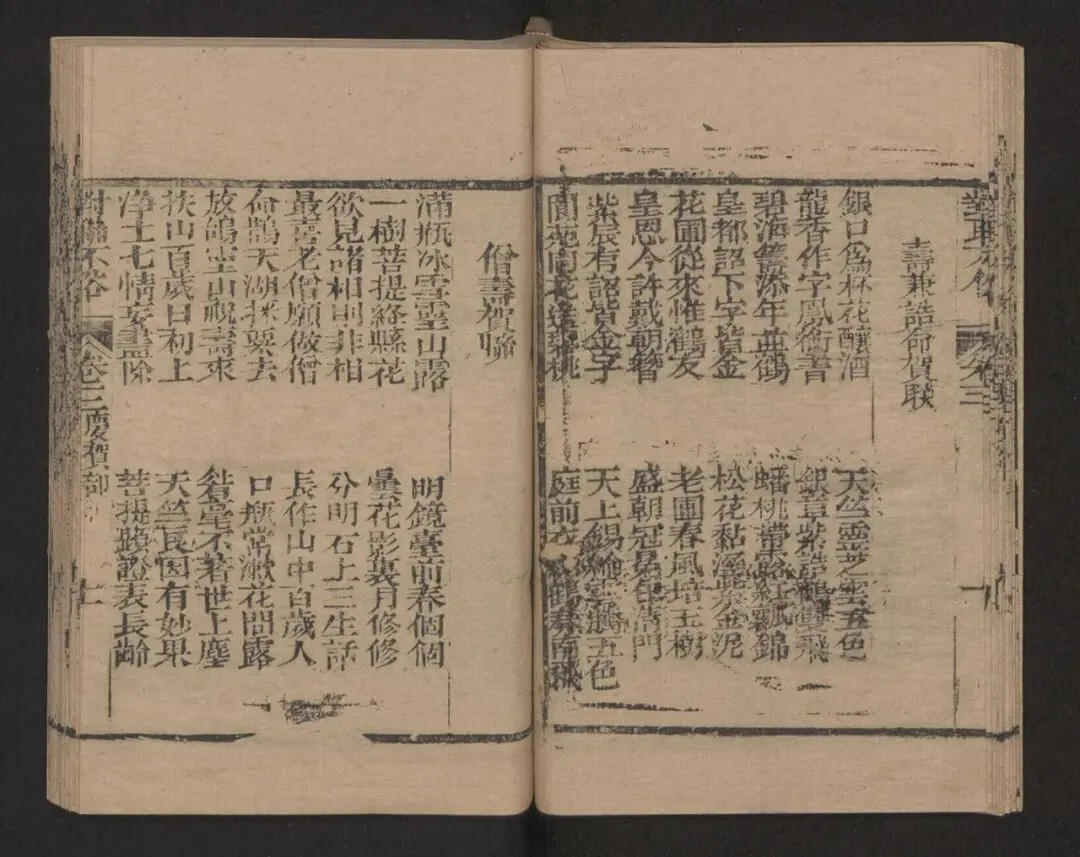 壽兼誥命賀联
銀口爲麻花釀酒
天竺靈芝雲五色
龍香作字鳳銜書
銀章紫誥鶴雙飛
碧海籌添年並鶴
蟠桃帶露紅瓢錦
皇都詔下字皆金
松花黏溼紫金泥
花圃從來惟鶴友
老圃春風培玉樹
皇恩今許戴朝簪
盛朝冠冕
門
紫宸有詔皆金字
天上錫
五色
閬苑
桃
庭前
南飛
僧壽賀聯
滿瓶冰雪靈山露
明鏡臺前春個個
一樹菩提絡縣花
曇花影裏月修修
欲見諸相則非相
分明石上三生話
最喜老僧願做僧
長作山中百歲人
命鵲天湖採栗去
口瓶常漱花間露
放鴿空山祝壽來
毫不著世上塵
扶山百歲日初上
天竺長因有妙果
淨土七情妄盡除
菩提蹟證表長齡
對聯不俗
卷三慶賀部
十